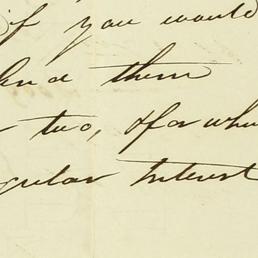 if you would
them
two, & for whi
gular Interest